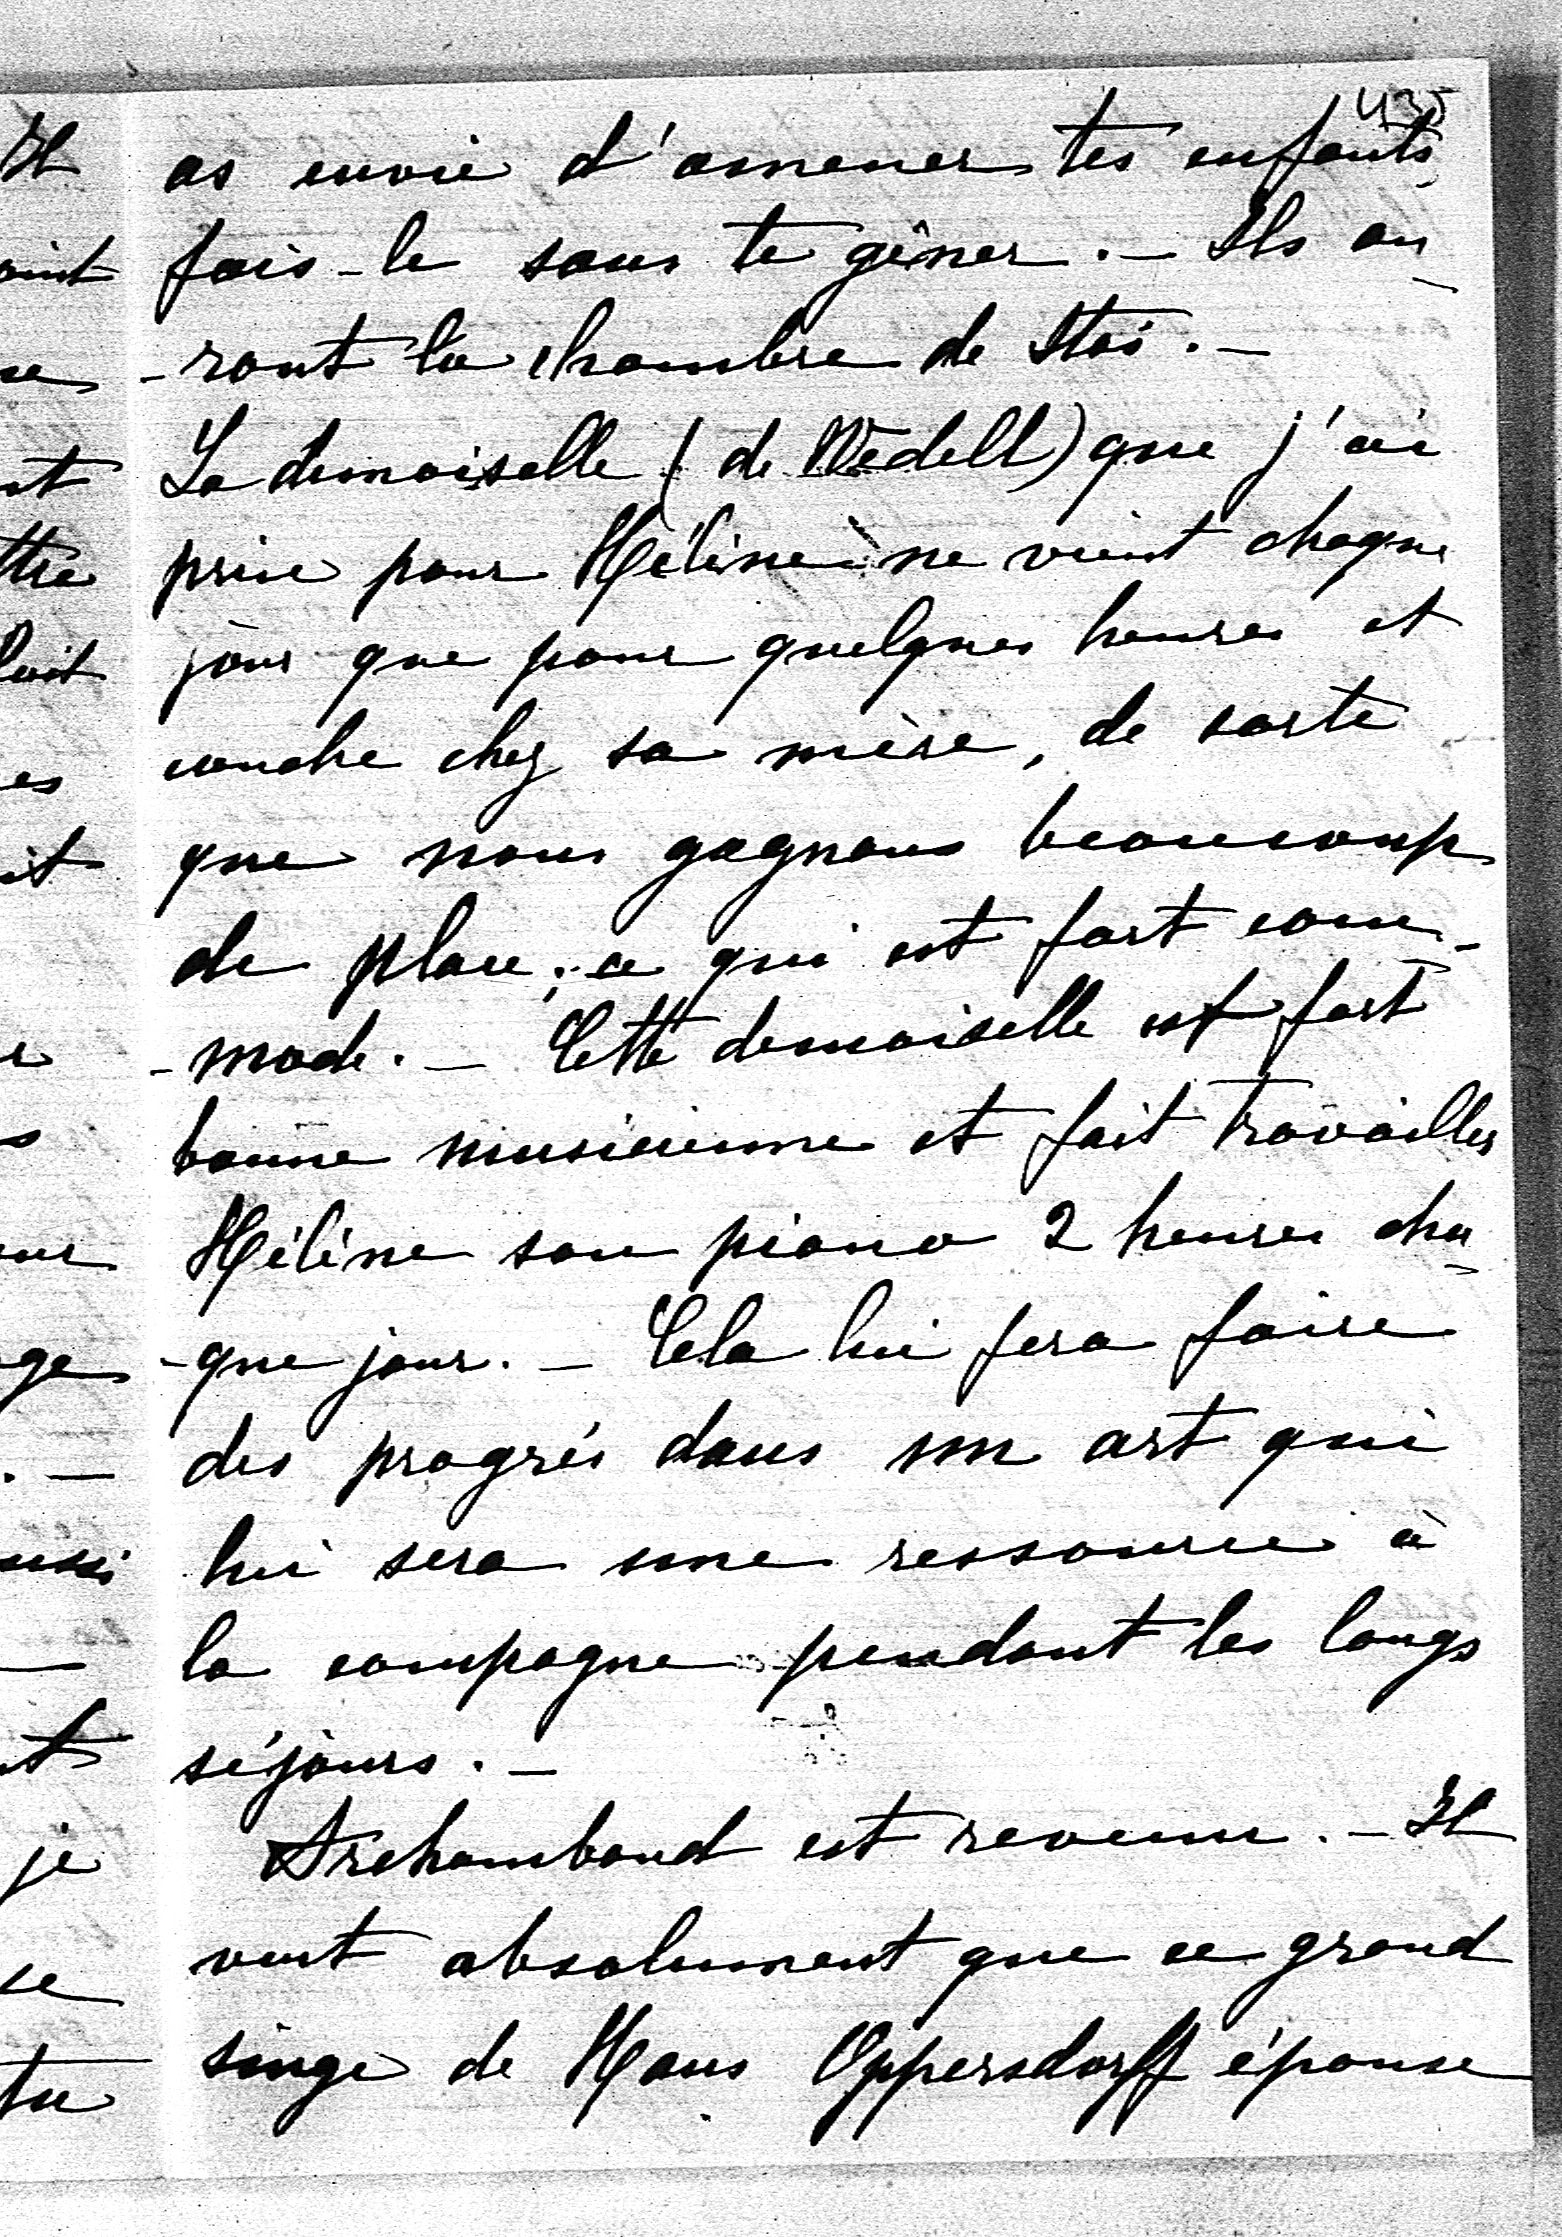 435
as envie d'amener tes enfants
fais-le sans te gêner. — Ils au-
-ront la chambre de Stas. —
La demoiselle (de Wedell) que j'ai
prise pour Hélène ne vient chaque
jour que pour quelques heures et
couche chez sa mère, de sorte
que nous gagnons beaucoup
de place; ce qui est fort com-
-mode. — Cette demoiselle est fort
bonne musicienne et fait travailler
Hélène son piano 2 heures cha-
-que jour. — Cela lui fera faire
des progrès dans un art qui
lui sera une ressource à
la campagne pendant les longs
séjours. —
Archambaud est revenu. — Il
veut absolument que ce grand
singe de Hans Oppersdorff épouse